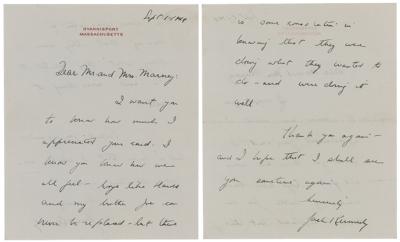 Sept 1-1944
HYANNISPORT
MASSACHUSETTS
Dear Mr and Mrs.
I want you
to know how much I
appreciated your card. I
know you know how we
all feel – boys like
and my brother Joe can
never be replaced – but there
is some consolation in
knowing that they were
doing what they wanted to
do – and were doing it
well.
Thank you again –
and I hope that I shall see
you sometime again
Sincerely
Jack Kennedy